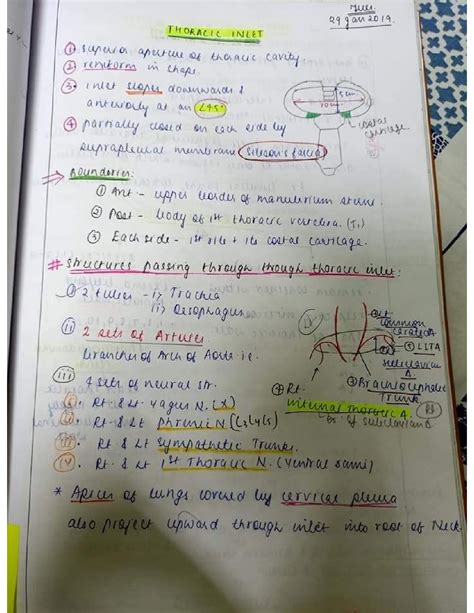 Tues.
29 Jan 2019.
THORACIC INLET
① superior aperture of thoracic cavity
② reniform in shape.
③ inlet slopes downwards &
anteriorly at an ∠45°
④ partially closed on each side by
suprapleural membrane (Sibson's fascia)
5cm
10cm
costal
cartilage
⇒ Boundaries:
① Ant - upper border of manubrium sterni.
② Post - body of 1st thoracic vertebra. (T1)
③ Each side - 1st rib + its costal cartilage.
# Structures passing through though thoracic inlet:
i) 2 tubes - i) Trachea
ii) Oesophagus
ii) 2 sets of Arteries
branches of Arch of Aorta i.e.
Lt
common
carotid A
LITA
subclavian
A
Brachiocephalic
Trunk
Rt.
internal thoracic A.
br of subclavian
iii) 4 sets of neural str.
i. Rt & Lt vagus N. (X)
ii. Rt & Lt phrenic N (C3,4,5)
iii. Rt & Lt sympathetic Trunk.
iv. Rt. & Lt 1st Thoracic N. (ventral rami)
* Apices of lungs covered by cervical pleura
also project upward through inlet into root of Neck